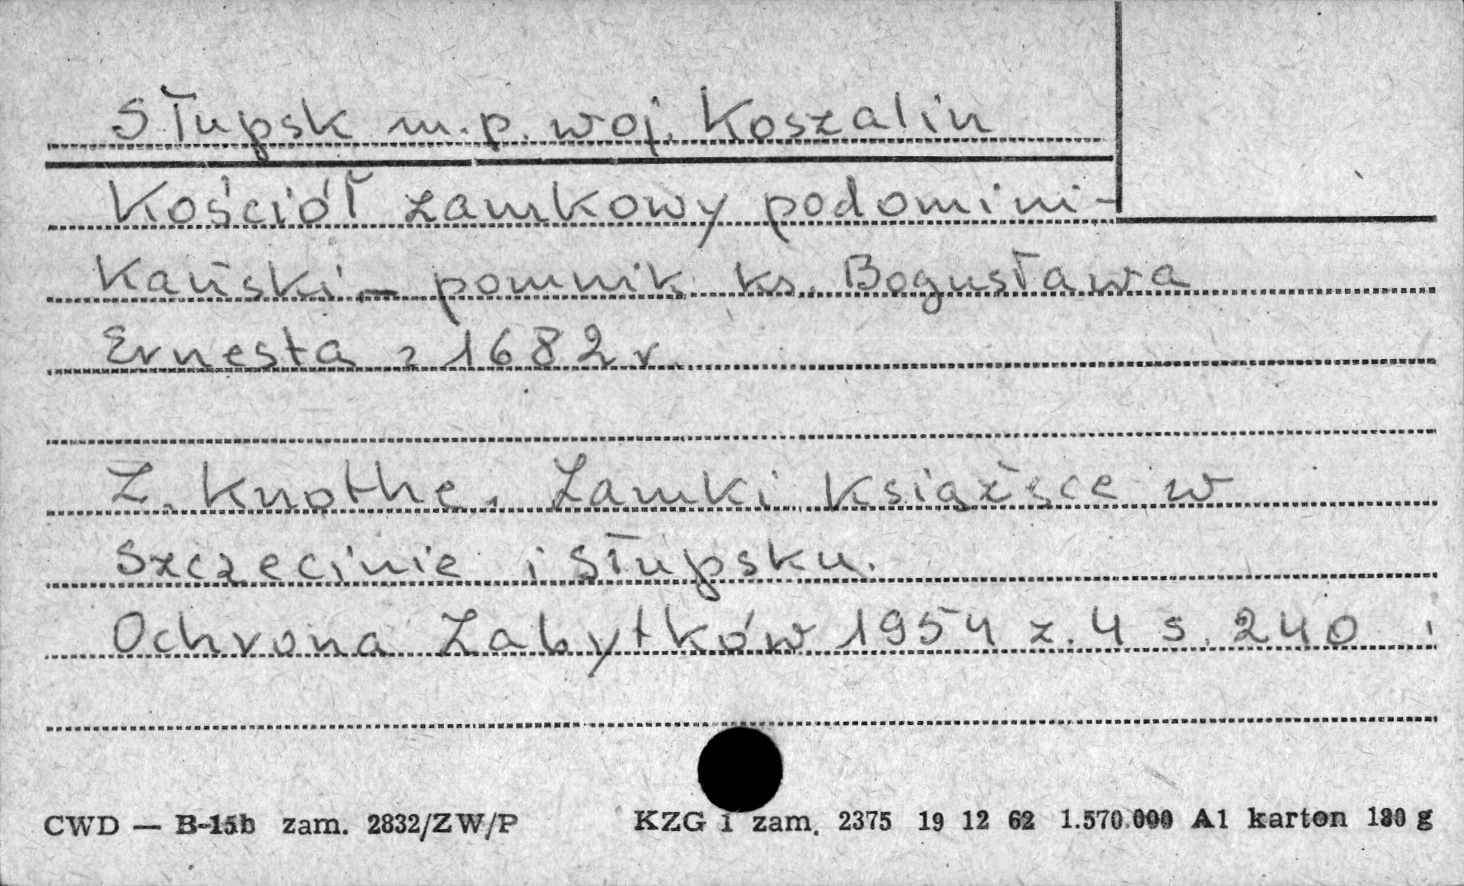 Słupsk m.p. woj. Koszalin
Kościół zamkowy podomini-
kański – pomnik ks. Bogusława
Ernesta z 1682 r.
Z. Knothe. Zamki książęce w
Szczecinie i Słupsku.
Ochrona Zabytków 1954 z. 4 s. 240 i
CWD — B-15b zam. 2832/ZW/P KZG 1 zam. 2375 19 12 62 1.570.000 A1 karton 180 g